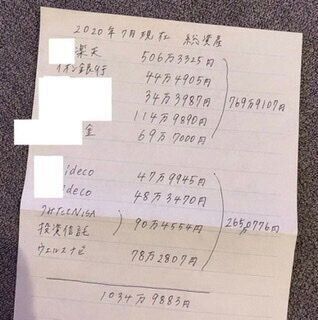 2020年7月現在 総資産
楽天 506万3325円
イオン銀行 44万4905円
34万3987円
114万9890円
金 69万7000円
769万9107円
ideco 47万9945円
ideco 48万3470円
つみたてNISA
投資信託 90万4554円
ウェルスナビ 78万2807円
265万0776円
1034万9883円